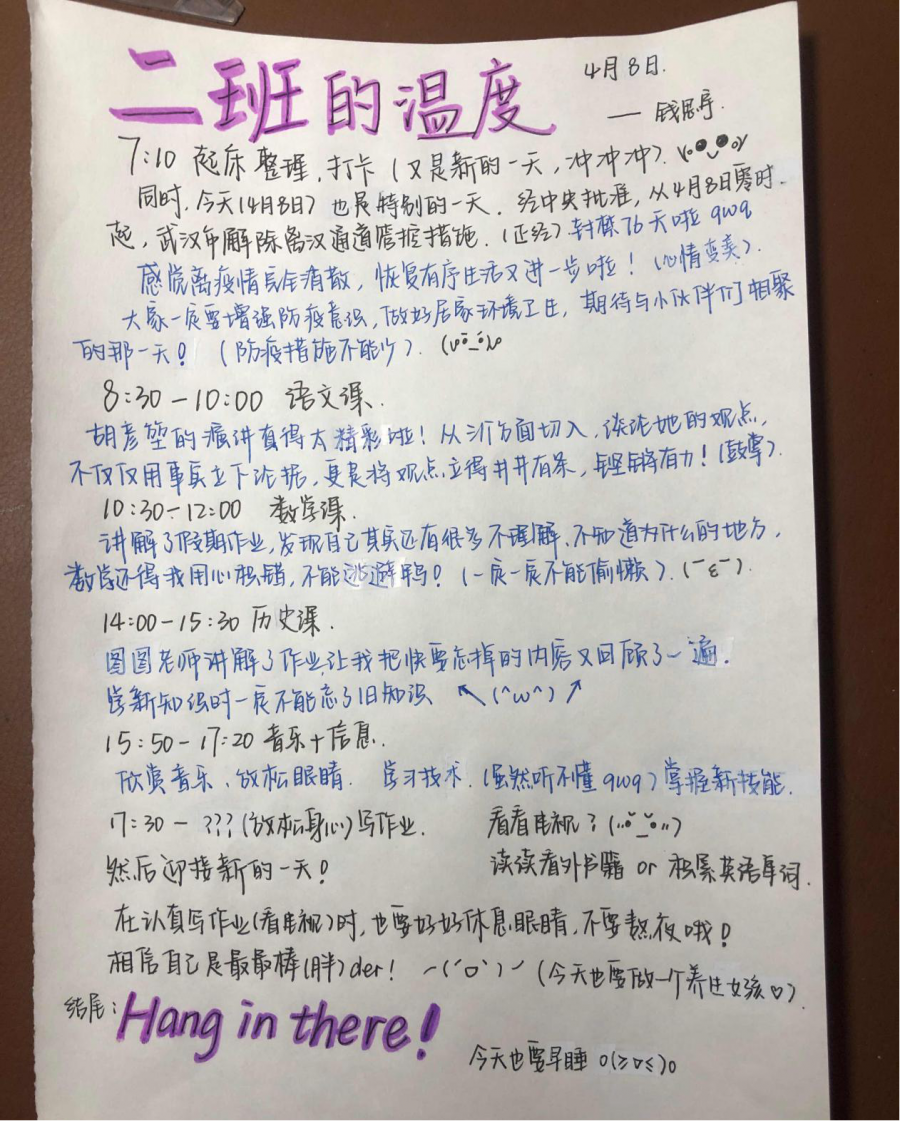 二班的温度
4月8日.
—— 钱思宇.
7:10 起床整理,打卡(又是新的一天,冲冲冲).
同时,今天(4月8日)也是特别的一天.经中央批准,从4月8日零时
起,武汉市解除离汉通道管控措施.(正经)封禁76天啦 qwq
感觉离疫情完全消散,恢复有序生活又进一步啦!(心情变美).
大家一定要增强防疫意识,做好居家环境卫生,期待与小伙伴们相聚
的那一天!(防疫措施不能少).
8:30-10:00 语文课.
胡彦堃的演讲真得太精彩啦!从三个方面切入,谈论她的观点,
不仅仅用事实立下论据,更是将观点立得井井有条,铿锵有力!(鼓掌).
10:30-12:00 数学课.
讲解了假期作业,发现自己其实还有很多不理解、不知道为什么的地方,
数学还得我用心积错,不能逃避鸭!(一定一定不能偷懒).(ˉεˉ).
14:00-15:30 历史课.
图图老师讲解了作业,让我把快要忘掉的内容又回顾了一遍.
学新知识时一定不能忘了旧知识 ↖(^w^)↗
15:50-17:20 音乐+信息.
欣赏音乐、放松眼睛. 学习技术.(虽然听不懂qwq)掌握新技能.
17:30-???(放松身心)写作业. 看看电视?
然后迎接新的一天! 读读看外书籍 or 积累英语单词.
在认真写作业(看电视)时,也要好好休息眼睛,不要熬夜哦!
相信自己是最最棒(胖)der! (今天也要做一个养生女孩♡).
结尾:Hang in there!
今天也要早睡 o(≥▽≤)o